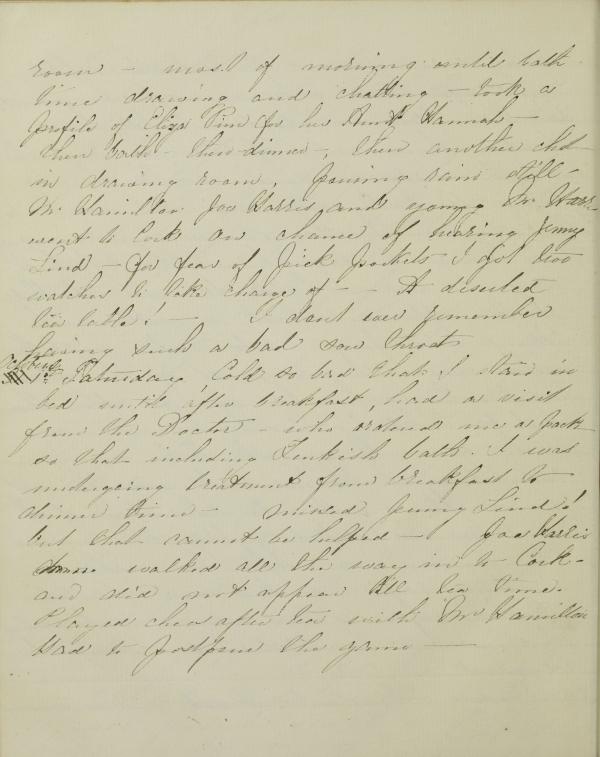 room - most of morning until bath
time drawing and chatting - took a
profile of Eliza Pim for her Aunt Hannah -
then bath - then dinner -, then another chat
in drawing room, pouring rain still -
Mr Hamilton Joe Harris and young Mr Harr
went to Cork on chance of hearing Jenny
Lind - for fear of pick pockets I got two
watches to take charge of - - A deserted
tea table! - I dont ever remember
having such a bad sore throat
October
1st Saturday, Cold so bad that I staid in
bed until after breakfast, had a visit
from the Doctor - who ordered me a pack
so that including Turkish bath. I was
undergoing treatment from breakfast to
dinner time - missed Jenny Lind!
but that cannot be helped - Joe Harris
walked all the way in to Cork -
and did not appear till tea time.
Played chess after tea with Mr Hamilton
Had to postpone the game -